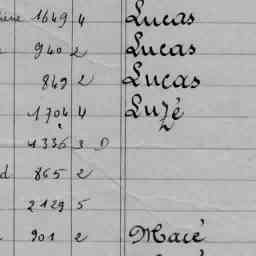 1649 4 Lucas
940 2 Lucas
849 2 Lucas
1704 4 Luzé
1336 3 D
d 865 2
2129 5
901 2 Macé